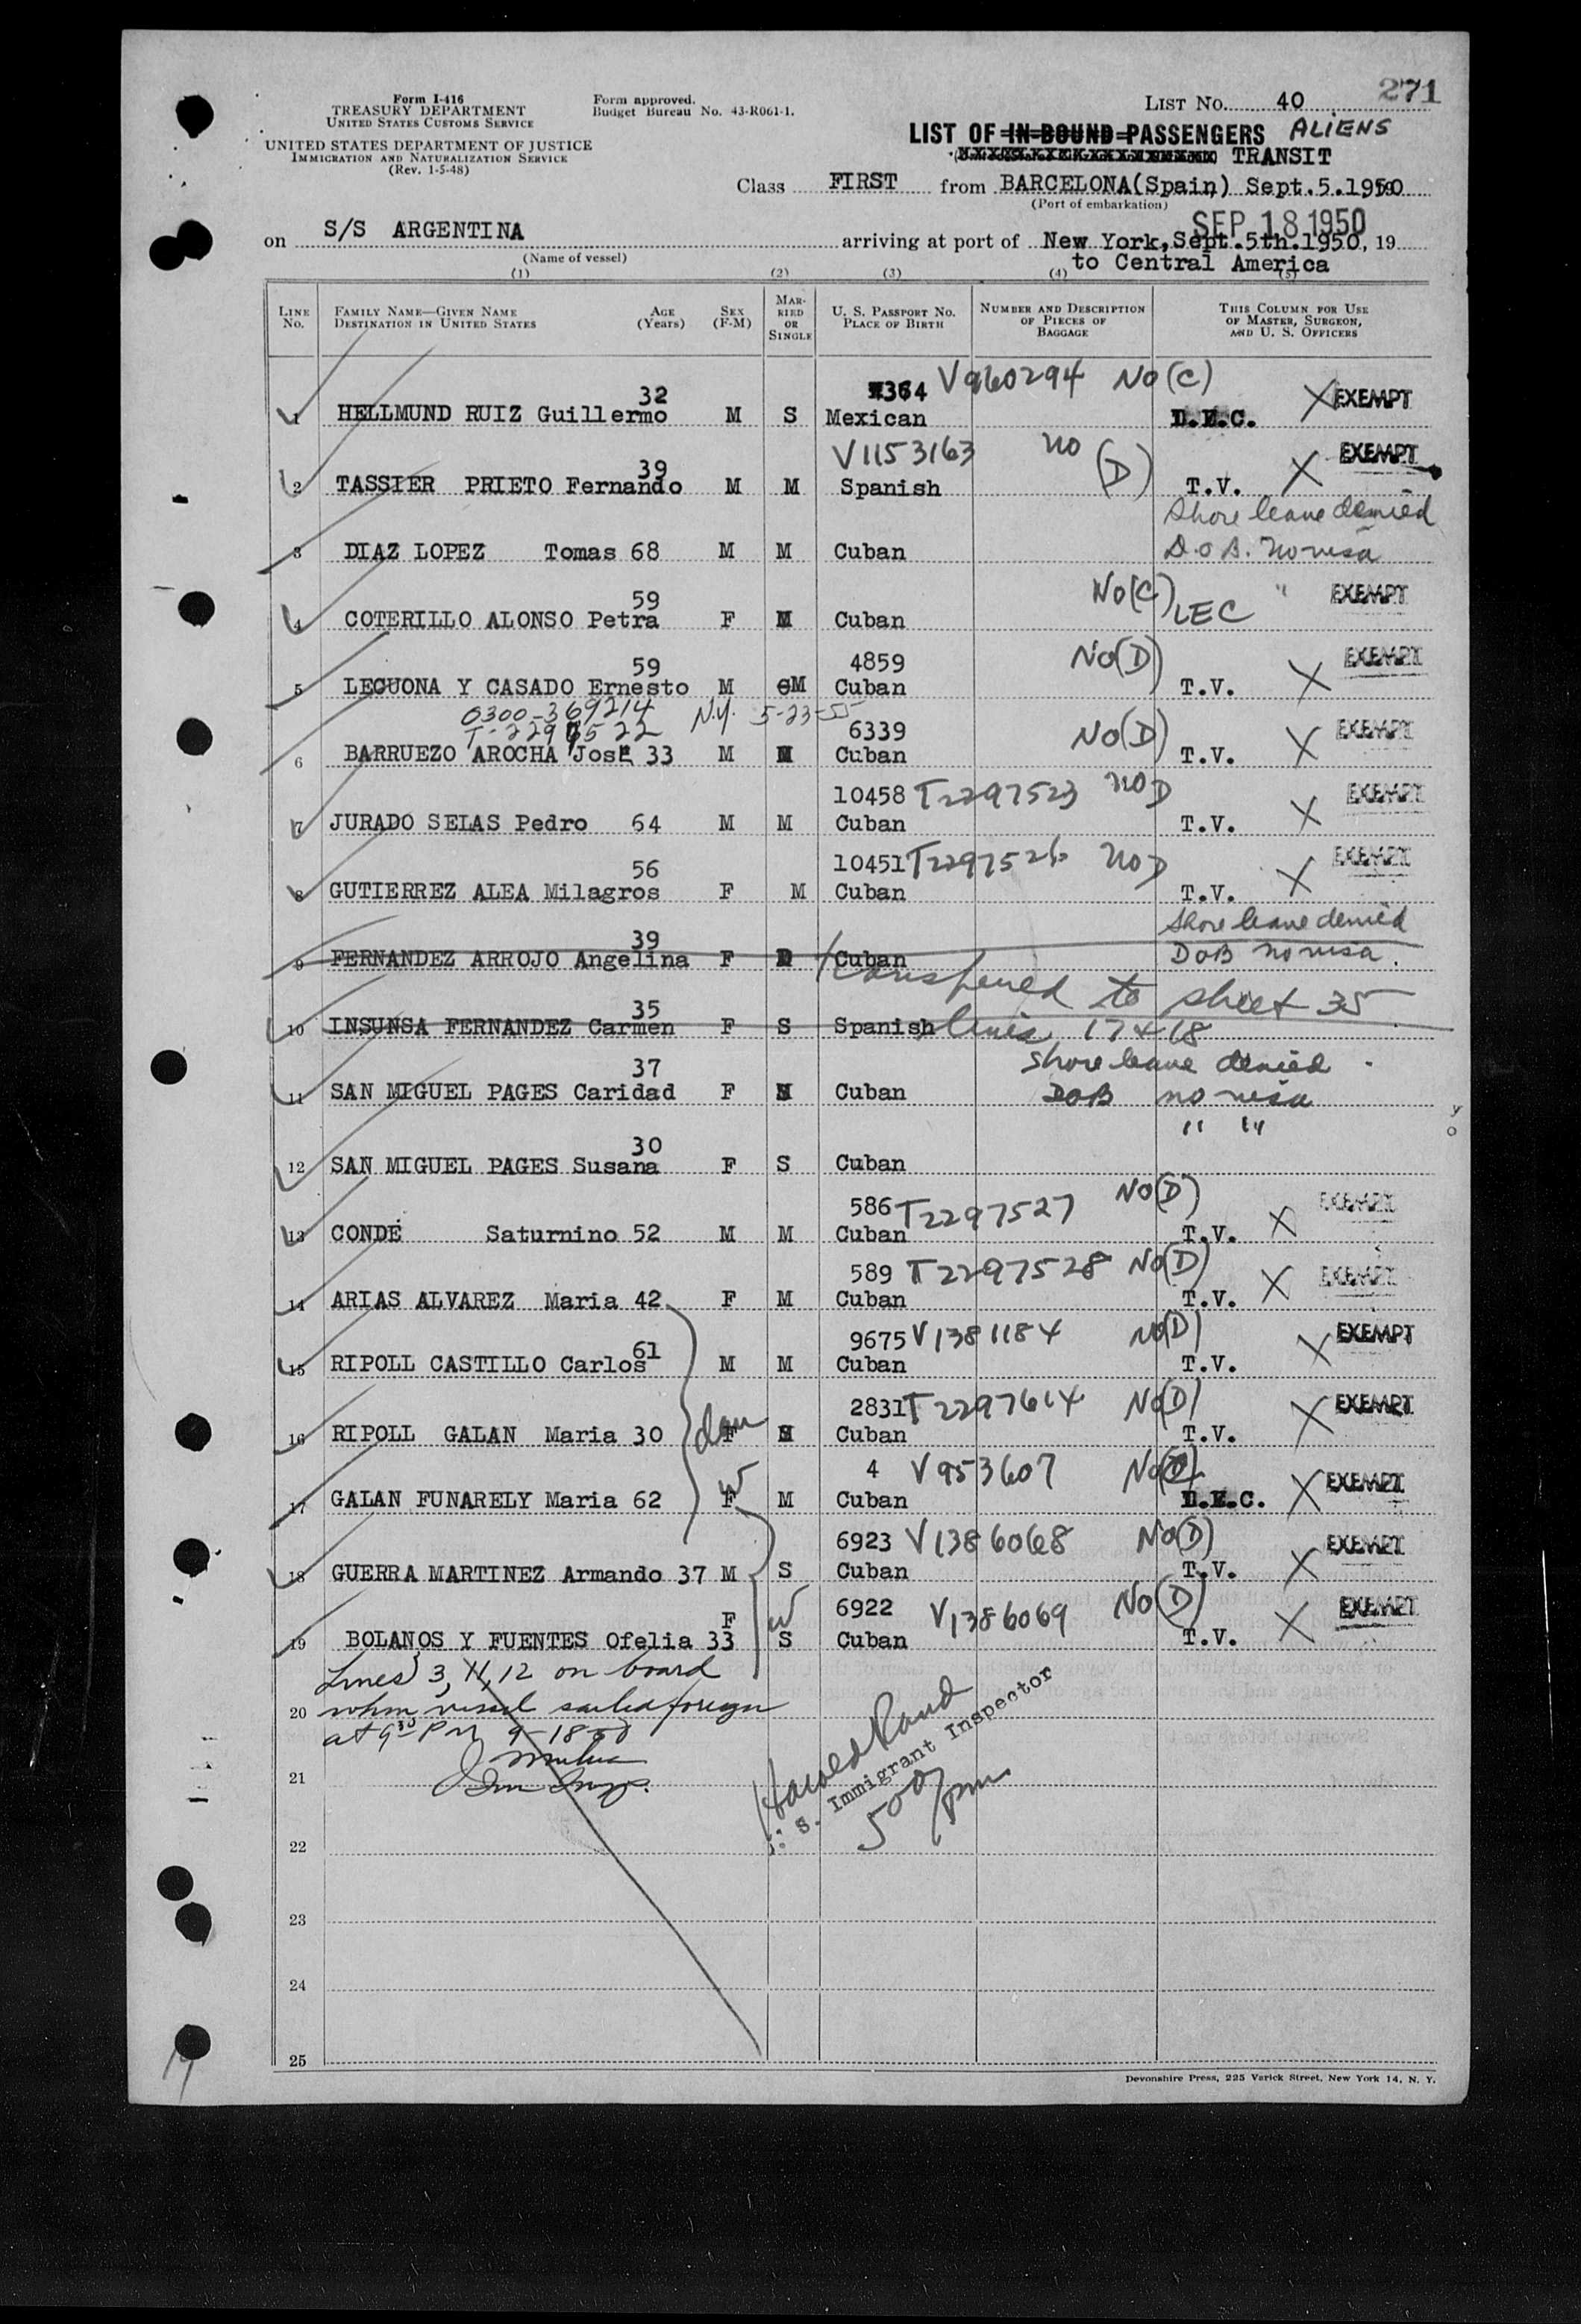 271
Form I-416
TREASURY DEPARTMENT
UNITED STATES CUSTOMS SERVICE
UNITED STATES DEPARTMENT OF JUSTICE
IMMIGRATION AND NATURALIZATION SERVICE
(Rev. 1-5-48)
Form approved.
Budget Bureau No. 43-R061-1.
LIST NO. 40
LIST OF IN-BOUND PASSENGERS ALIENS
TRANSIT
Class FIRST from BARCELONA(Spain) Sept.5.1950
(Port of embarkation)
SEP 18 1950
on S/S ARGENTINA arriving at port of New York, Sept.5th.1950, 19
(Name of vessel)
to Central America
(1) (2) (3) (4) (5)
LINE NO. FAMILY NAME—GIVEN NAME DESTINATION IN UNITED STATES AGE (Years) SEX (F-M) MARRIED OR SINGLE U. S. PASSPORT NO. PLACE OF BIRTH NUMBER AND DESCRIPTION OF PIECES OF BAGGAGE THIS COLUMN FOR USE OF MASTER, SURGEON, AND U. S. OFFICERS
32 364 V960294 No (C) X EXEMPT
1 HELLMUND RUIZ Guillermo M S Mexican
39 V1153163 no (D) X EXEMPT
2 TASSIER PRIETO Fernando M M Spanish T.V.
Shore leave denied
3 DIAZ LOPEZ Tomas 68 M M Cuban D.O.B. No visa
59 No(C) " EXEMPT
4 COTERILLO ALONSO Petra F M Cuban LEC
59 4859 No(D) EXEMPT
5 LECUONA Y CASADO Ernesto M M Cuban T.V. X
0300-369214 N.Y. 5-23-55
6339 No(D) EXEMPT
6 BARRUEZO AROCHA José 33 M M Cuban T.V. X
10458 T2297523 no D EXEMPT
7 JURADO SELAS Pedro 64 M M Cuban T.V. X
56 10451 T2297526 no D EXEMPT
8 GUTIERREZ ALEA Milagros F M Cuban T.V. X
Shore leave denied
39
9 FERNANDEZ ARROJO Angelina F Cuban DOB no visa.
transferred to sheet 35
35
10 INSUNSA FERNANDEZ Carmen F S Spanish lines 17 & 18
37 Shore leave denied
11 SAN MIGUEL PAGES Caridad F Cuban DOB no visa
30 " "
12 SAN MIGUEL PAGES Susana F S Cuban
586 T2297527 No(D) EXEMPT
13 CONDE Saturnino 52 M M Cuban T.V. X
589 T2297528 No(D) EXEMPT
14 ARIAS ALVAREZ Maria 42 F M Cuban T.V. X
61 9675 V1381184 No(D) EXEMPT
15 RIPOLL CASTILLO Carlos M M Cuban T.V. X
2831 T2297614 No(D) EXEMPT
16 RIPOLL GALAN Maria 30 F Cuban T.V. X
4 V953607 EXEMPT
17 GALAN FUNARELY Maria 62 F M Cuban X
6923 V1386068 No(D) EXEMPT
18 GUERRA MARTINEZ Armando 37 M S Cuban T.V. X
F 6922 V1386069 No(D) EXEMPT
19 BOLANOS Y FUENTES Ofelia 33 S Cuban T.V. X
Lines 3, 11, 12 on board
20 when vessel sailed foreign
at 9 30 PM 9-18-50
21
Harold Rand
S. Immigrant Inspector
500 pm
22
23
24
25
Devonshire Press, 225 Varick Street, New York 14, N. Y.